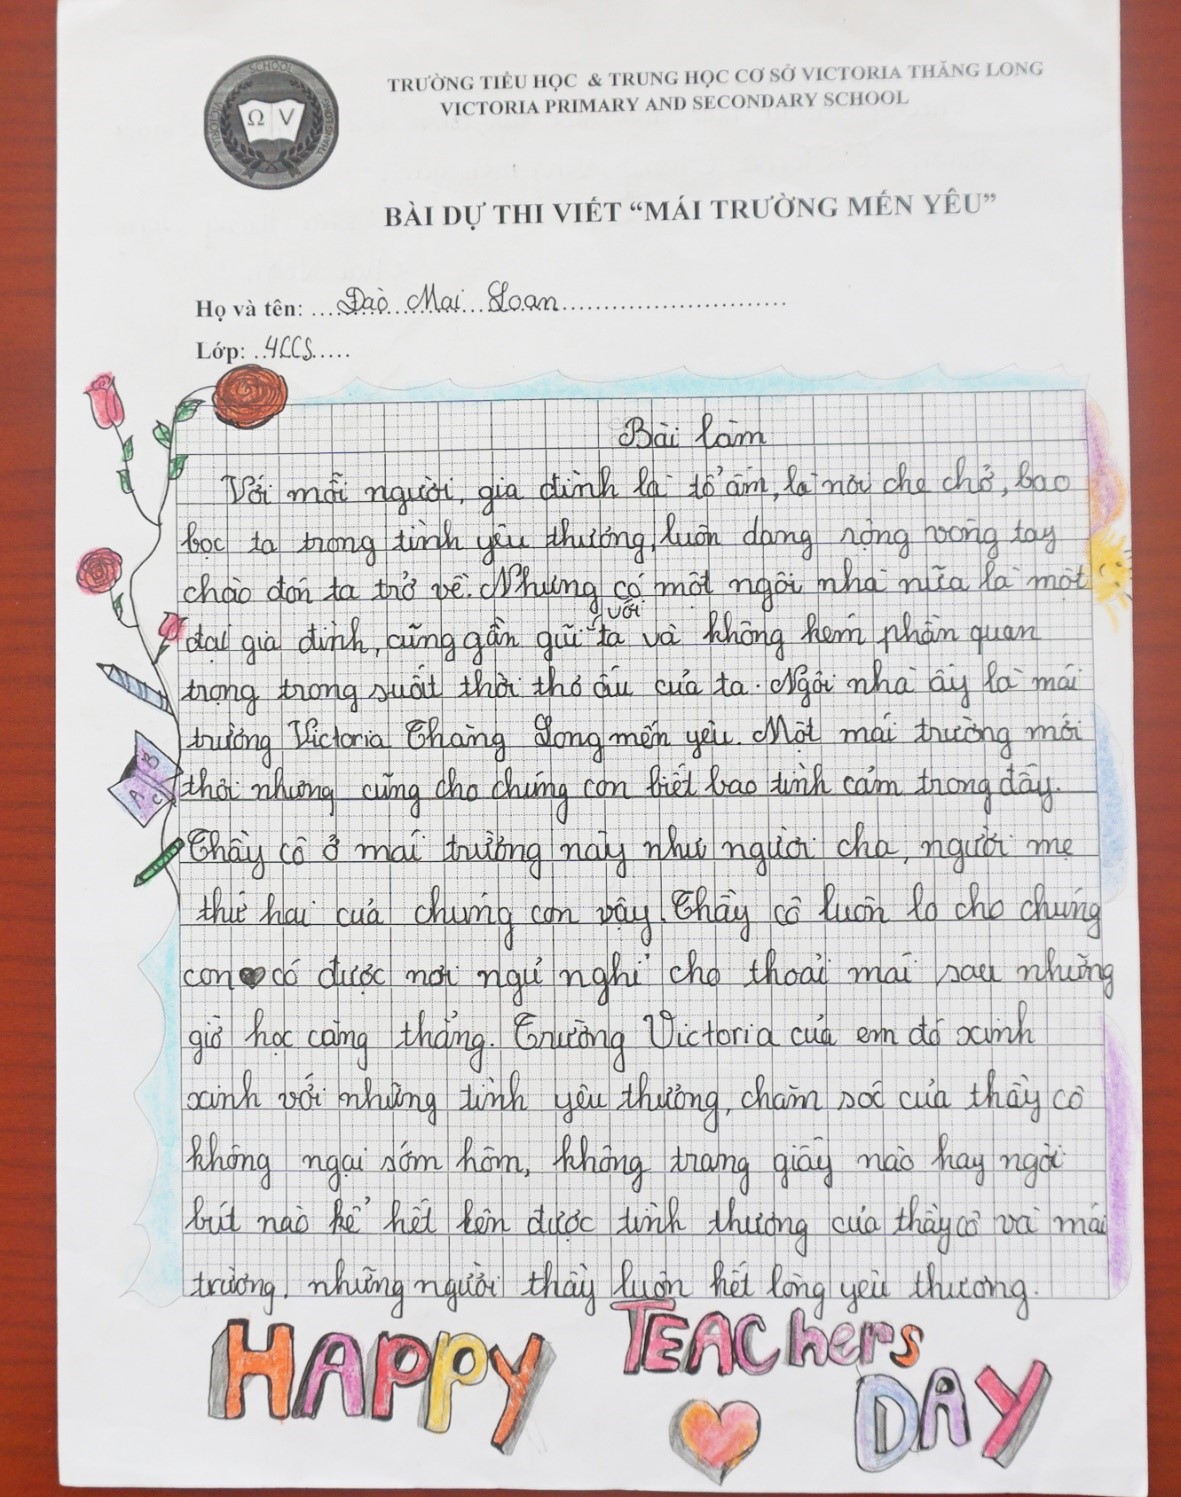 SCHOOL
VICTORIA
THANGLONG
Ω V
TRƯỜNG TIỂU HỌC & TRUNG HỌC CƠ SỞ VICTORIA THĂNG LONG
VICTORIA PRIMARY AND SECONDARY SCHOOL
BÀI DỰ THI VIẾT “MÁI TRƯỜNG MẾN YÊU”
Họ và tên: ...Đào...Mai...Loan...........................
Lớp: ..4CCS.....
Bài làm
Với mỗi người, gia đình là tổ ấm, là nơi che chở, bao
bọc ta trong tình yêu thương, luôn dang rộng vòng tay
chào đón ta trở về. Nhưng có một ngôi nhà nữa là một
đại gia đình, cũng gần gũi với ta và không kém phần quan
trọng trong suốt thời thơ ấu của ta. Ngôi nhà ấy là mái
trường Victoria Thăng Long mến yêu. Một mái trường mới
thôi nhưng cũng cho chúng con biết bao tình cảm trong đấy.
Thầy cô ở mái trường này như người cha, người mẹ
thứ hai của chúng con vậy. Thầy cô luôn lo cho chúng
con có được nơi ngủ nghỉ cho thoải mái sau những
giờ học căng thẳng. Trường Victoria của em đó xinh
xinh với những tình yêu thương, chăm sóc của thầy cô
không ngại sớm hôm, không trang giấy nào hay ngòi
bút nào kể hết lên được tình thương của thầy cô và mái
trường, những người thầy luôn hết lòng yêu thương.
A B C
HAPPY TEACHERS
DAY